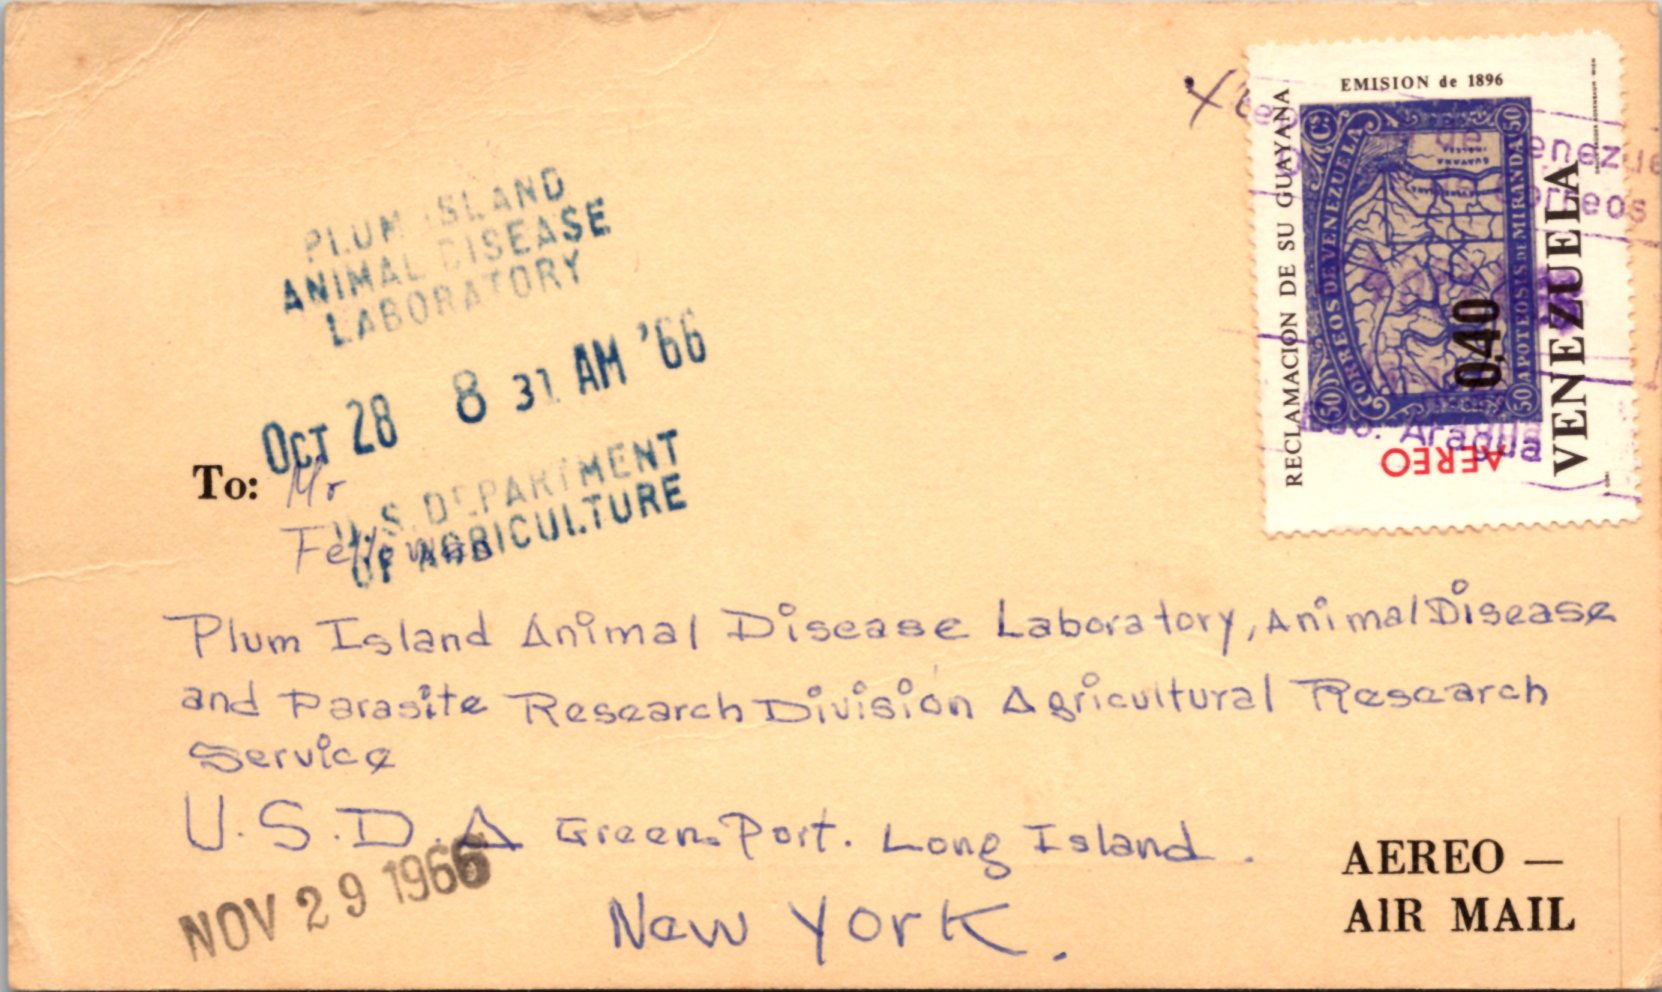 PLUM ISLAND
ANIMAL DISEASE
LABORATORY
OCT 28 8 31 AM '66
U.S. DEPARTMENT
OF AGRICULTURE
To: Mr
Plum Island Animal Disease Laboratory, Animal Disease
and Parasite Research Division Agricultural Research
Service
U.S.D.A Green Port. Long Island.
New York.
NOV 29 1966
AEREO —
AIR MAIL
EMISION de 1896
RECLAMACION DE SU GUAYANA
CORREOS DE VENEZUELA
APOTEOSIS DE MIRANDA
50
50
50
0,40
VENEZUELA
AEREO
de Venezue
Correos
Edo. Aragua